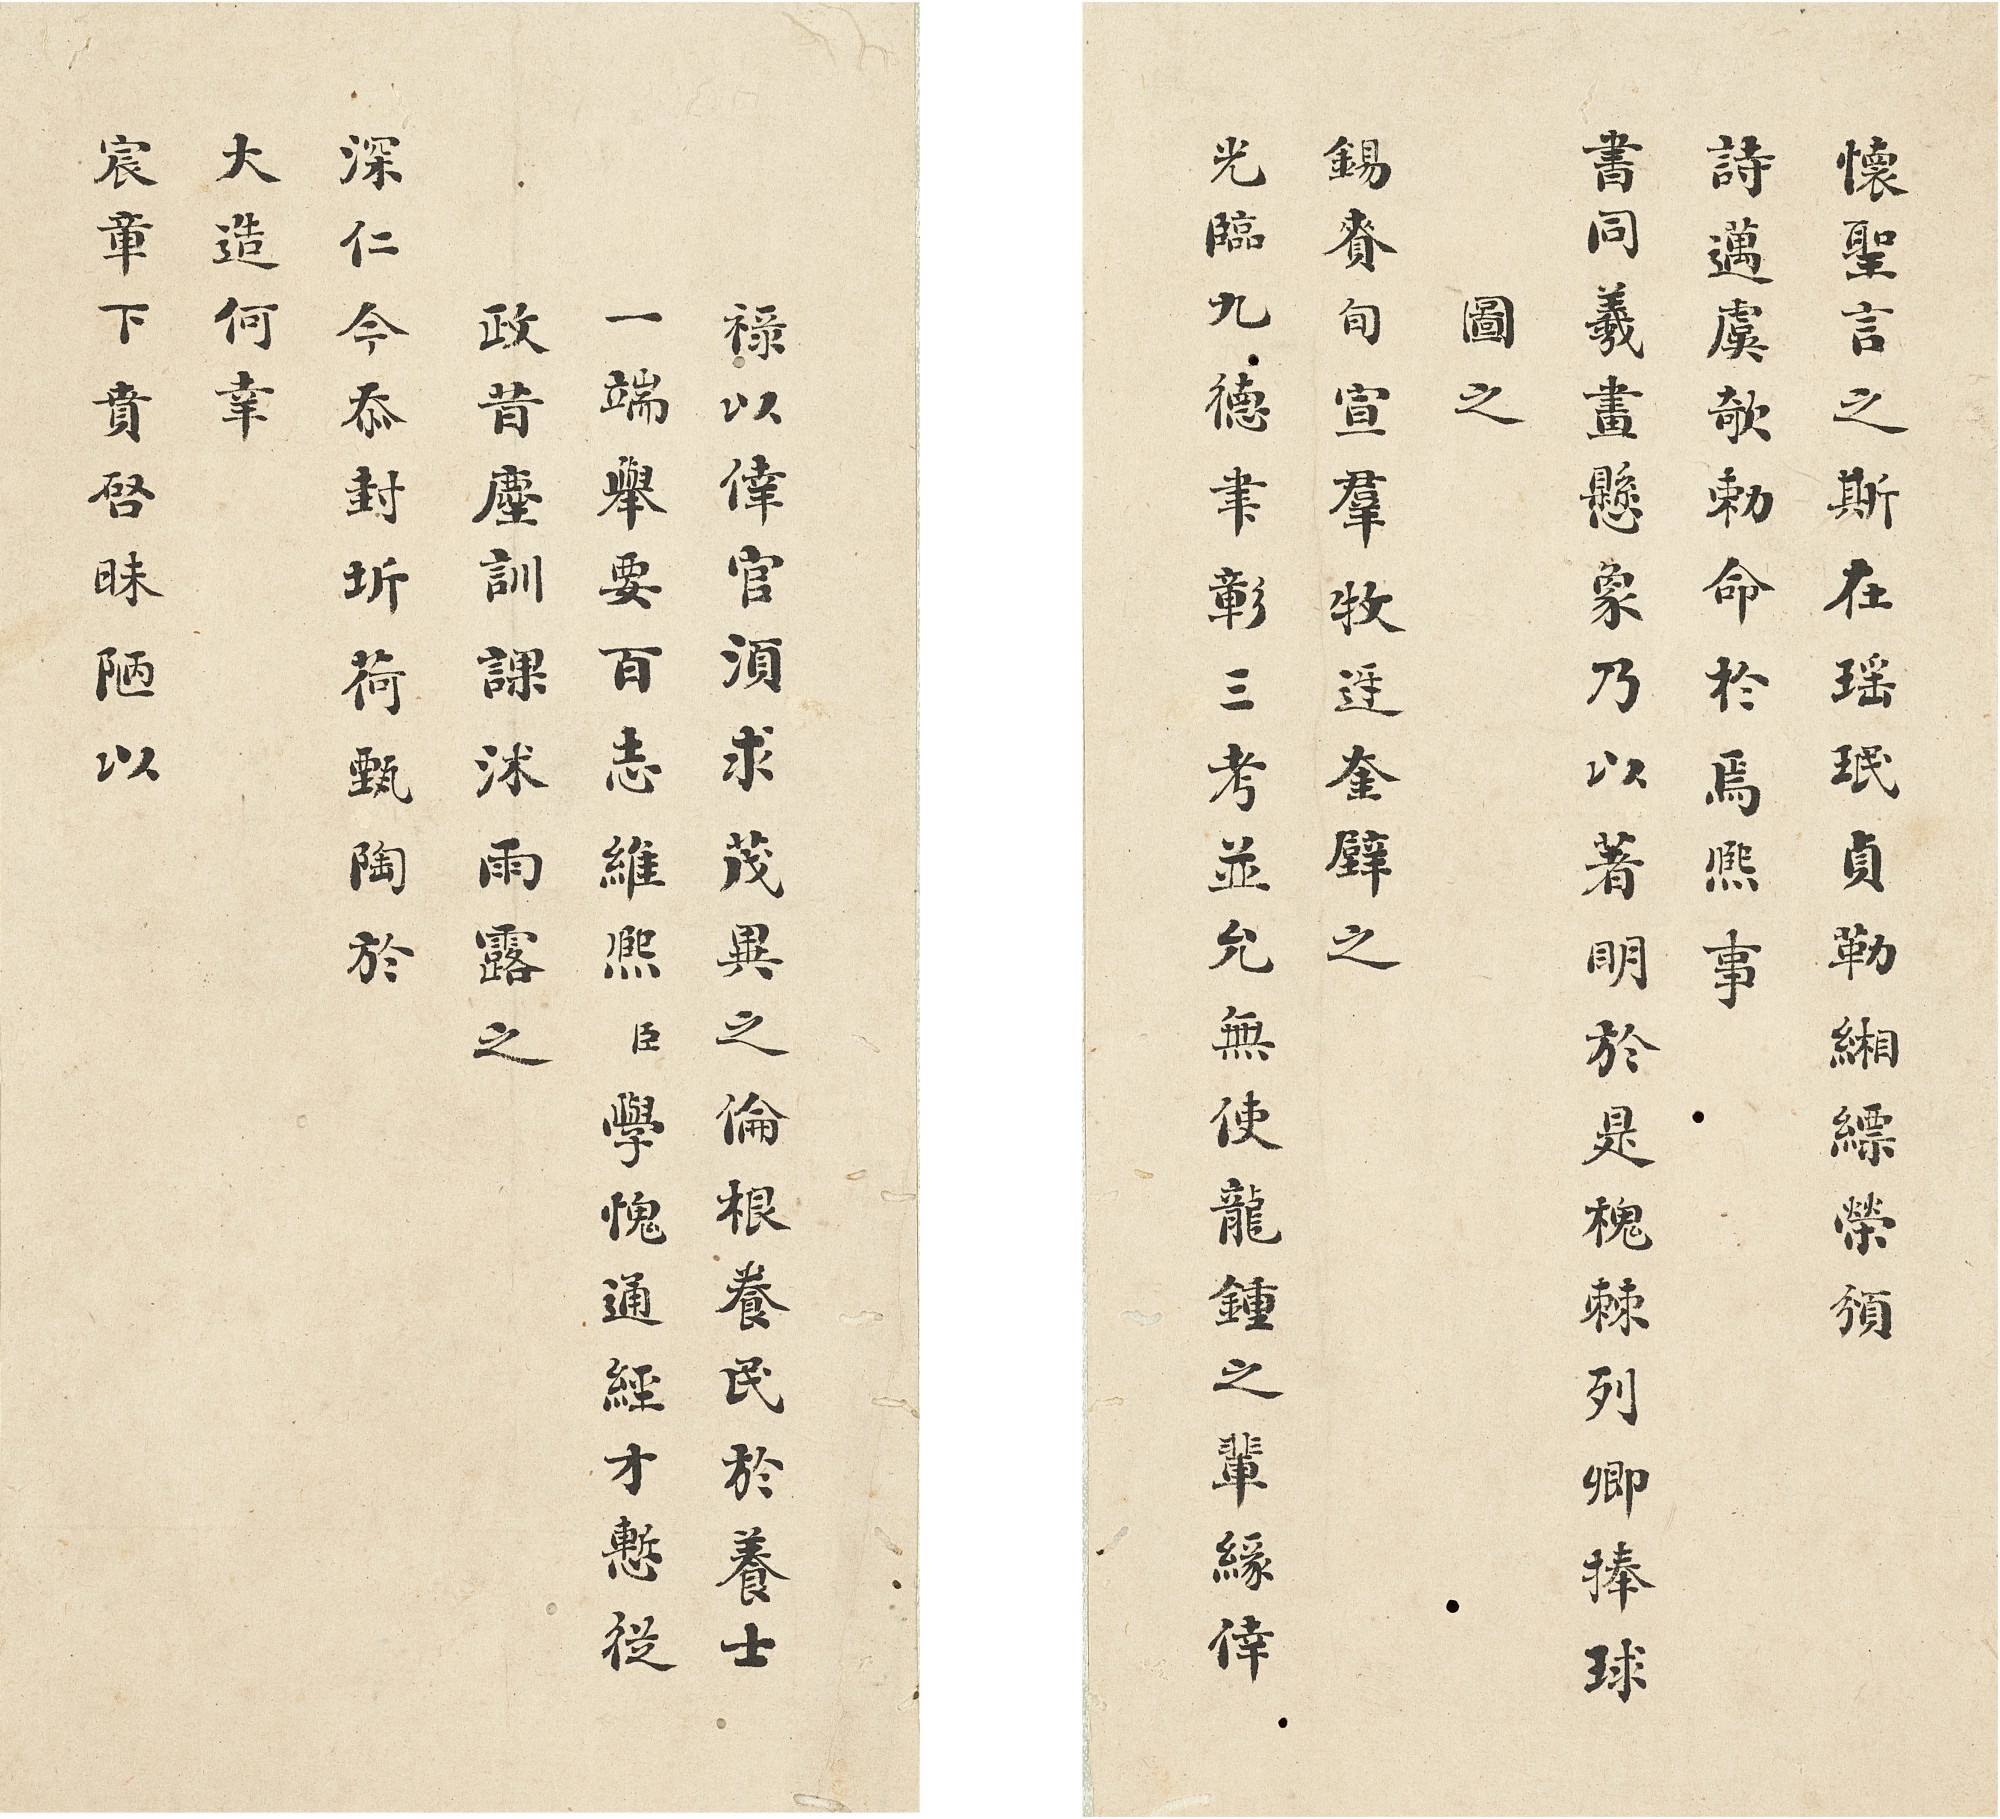 懷聖言之斯在瑶珉貞勒緗縹榮頒
詩邁虞欹勅命於焉熈事
書同羲畫懸象乃以著明於是槐棘列卿捧球
圖之
錫賚旬宣羣牧迓奎璧之
光臨九德聿彰三考並允無使龍鍾之輩緣倖
禄以倖官須求茂異之倫根養民於養士
一端舉要百志維熈臣學愧通經才慙從
政昔塵訓課沭雨露之
深仁今忝封圻荷甄陶於
大造何幸
宸章下賁啓昧陋以